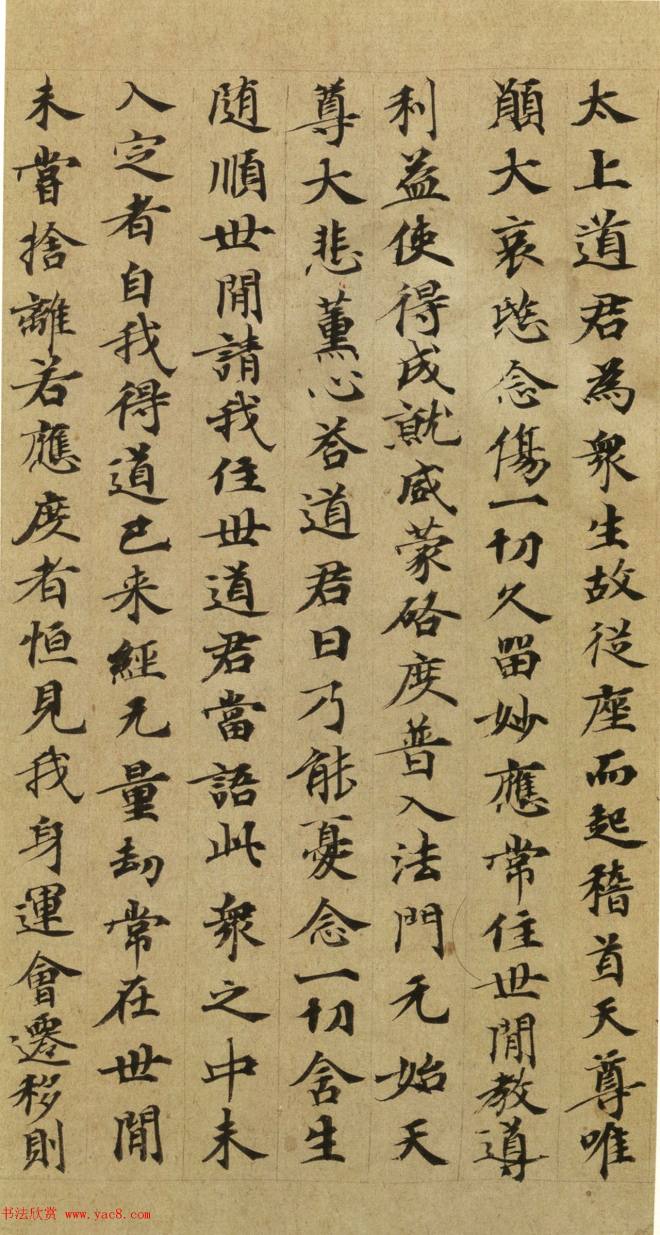 太上道君為衆生故從座而起稽首天尊唯
願大哀愍念傷一切久留妙應常住世間教導
利益使得成就咸蒙啓度普入法門无始天
尊大悲薰心荅道君曰乃能憂念一切含生
随順世間請我住世道君當語此衆之中未
入定者自我得道已来經无量劫常在世間
未嘗捨離若應度者恒見我身運會遷移則
书法欣赏 www.yac8.com